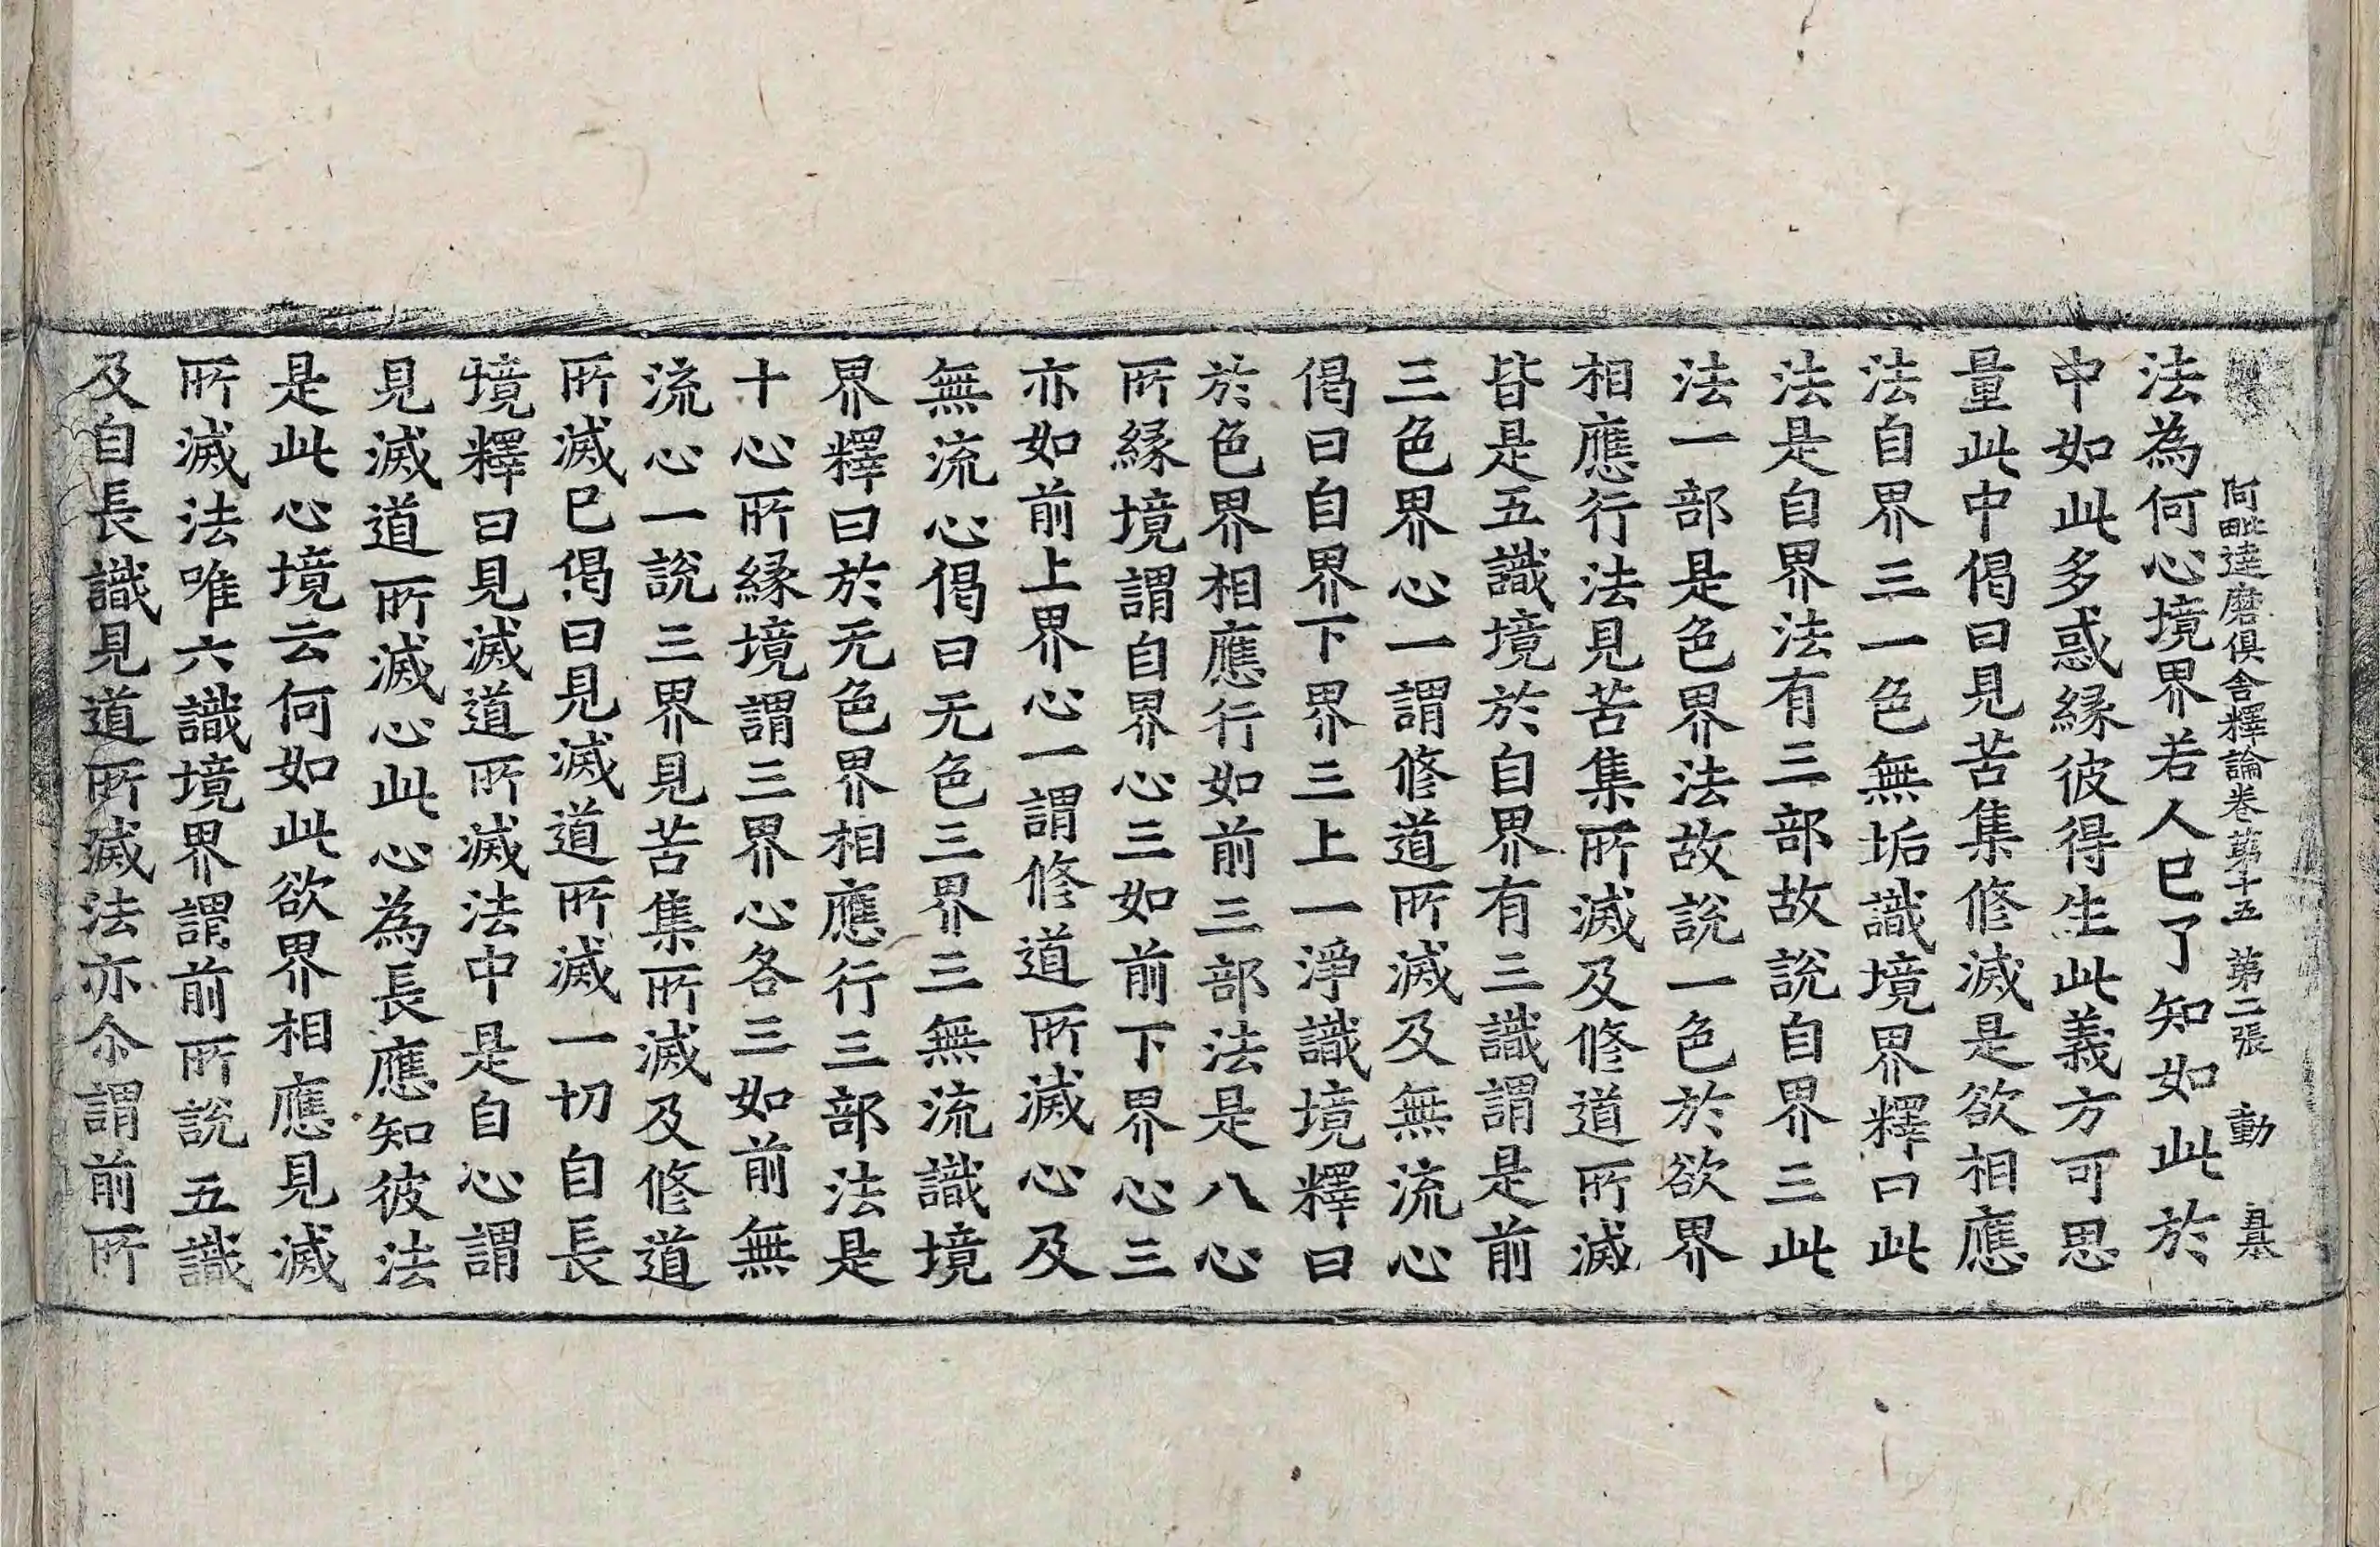 阿毗達磨俱舍釋論卷第十五 第二張 動
法為何心境界若人已了知如此於
中如此多惑緣彼得生此義方可思
量此中偈曰見苦集修滅是欲相應
法自界三一色無垢識境界釋曰此
法是自界法有三部故說自界三此
法一部是色界法故說一色於欲界
相應行法見苦集所滅及修道所滅
皆是五識境於自界有三識謂是前
三色界心一謂修道所滅及無流心
偈曰自界下界三上一淨識境釋曰
於色界相應行如前三部法是八心
所緣境謂自界心三如前下界心三
亦如前上界心一謂修道所滅心及
無流心偈曰无色三界三無流識境
界釋曰於无色界相應行三部法是
十心所緣境謂三界心各三如前無
流心一說三界見苦集所滅及修道
所滅已偈曰見滅道所滅一切自長
境釋曰見滅道所滅法中是自心謂
見滅道所滅心此心為長應知彼法
是此心境云何如此欲界相應見滅
所滅法唯六識境界謂前所說五識
及自長識見道所滅法亦尒謂前所